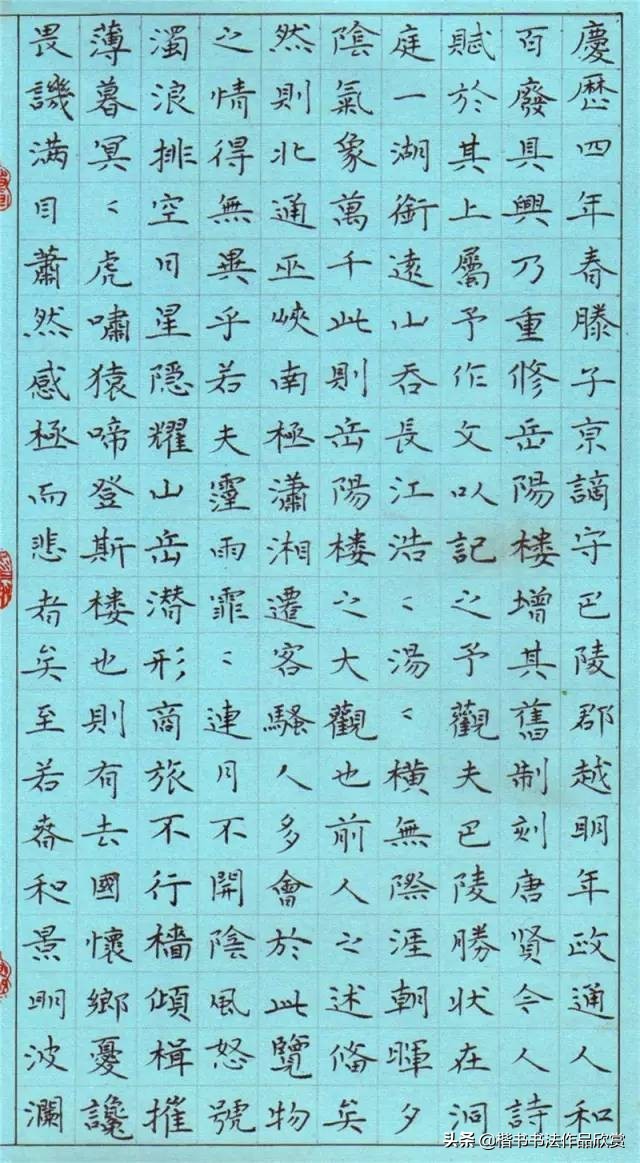 慶曆四年春滕子京謫守巴陵郡越明年政通人和
百廢具興乃重修岳陽楼增其舊制刻唐賢今人詩
賦於其上屬予作文以記之予觀夫巴陵勝状在洞
庭一湖銜遠山吞長江浩〻湯〻横無際涯朝暉夕
陰氣象萬千此則岳陽楼之大觀也前人之述俻矣
然則北通巫峽南極瀟湘遷客騷人多會於此覽物
之情得無異乎若夫霪雨霏〻連月不開陰風怒號
濁浪排空日星隠耀山岳潜形商旅不行檣傾楫摧
薄暮冥〻虎嘯猿啼登斯楼也則有去國懷鄉憂讒
畏譏满目蕭然感極而悲者矣至若春和景明波瀾
头条 @楷书书法作品欣赏